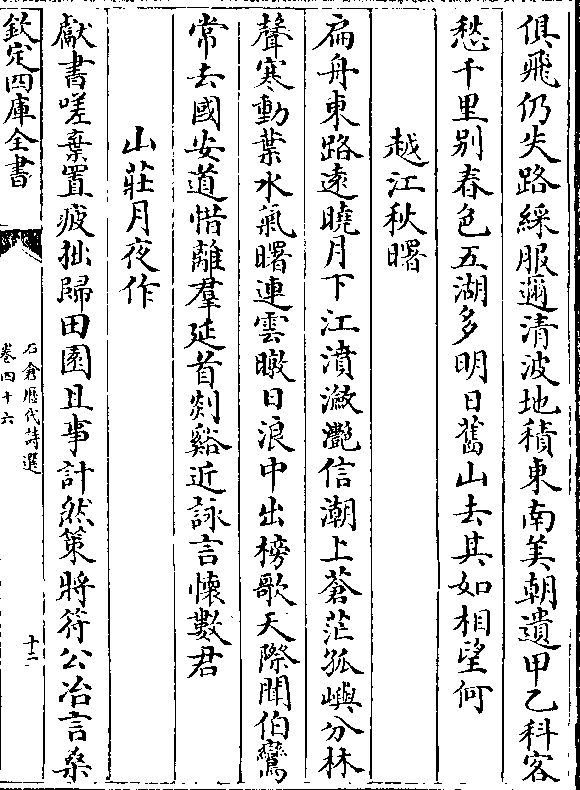 俱飛仍失路綵服邇清波地積東南美朝遺甲乙科客
愁千里别春色五湖多明日舊山去其如相望何
越江秋曙
扁舟東路遠曉月下江濆瀲灔信潮上蒼茫孤嶼分林
聲寒動葉水氣曙連雲暾日浪中出榜歌天際聞伯鸞
常去國安道惜離羣延首剡谿近詠言懷數君
山莊月夜作
獻書嗟棄置疲拙歸田園且事計然策將符公冶言桑
欽定四庫全書
石倉歷代詩選
卷四十六
十二